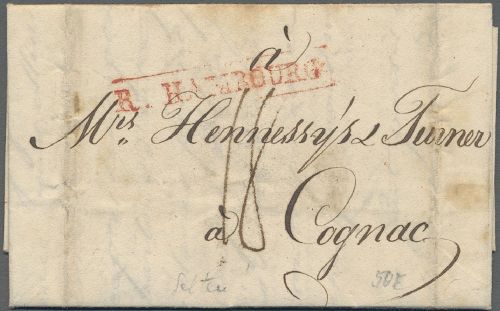 à
R. HAMBOURG
Mrs Hennessy's & Turner
18
à Cognac
50E